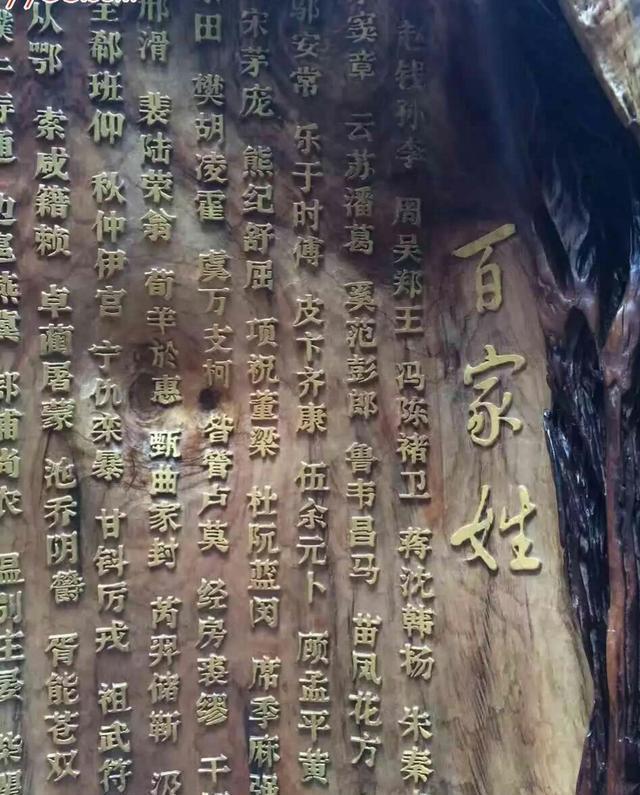 百家姓
赵钱孙李 周吴郑王 冯陈褚卫 蒋沈韩杨 朱秦
窦章 云苏潘葛 奚范彭郎 鲁韦昌马 苗凤花方
邬安常 乐于时傅 皮卞齐康 伍余元卜 顾孟平黄
宋茅庞 熊纪舒屈 项祝董梁 杜阮蓝闵 席季麻强
田 樊胡凌霍 虞万支柯 昝管卢莫 经房裘缪 干
邢滑 裴陆荣翁 荀羊於惠 甄曲家封 芮羿储靳 汲
郗班仰 秋仲伊宫 宁仇栾暴 甘钭厉戎 祖武符
从鄂 索咸籍赖 卓蔺屠蒙 池乔阴鬱 胥能苍双
寿通 边扈燕冀 郏浦尚农 温别庄晏 柴瞿